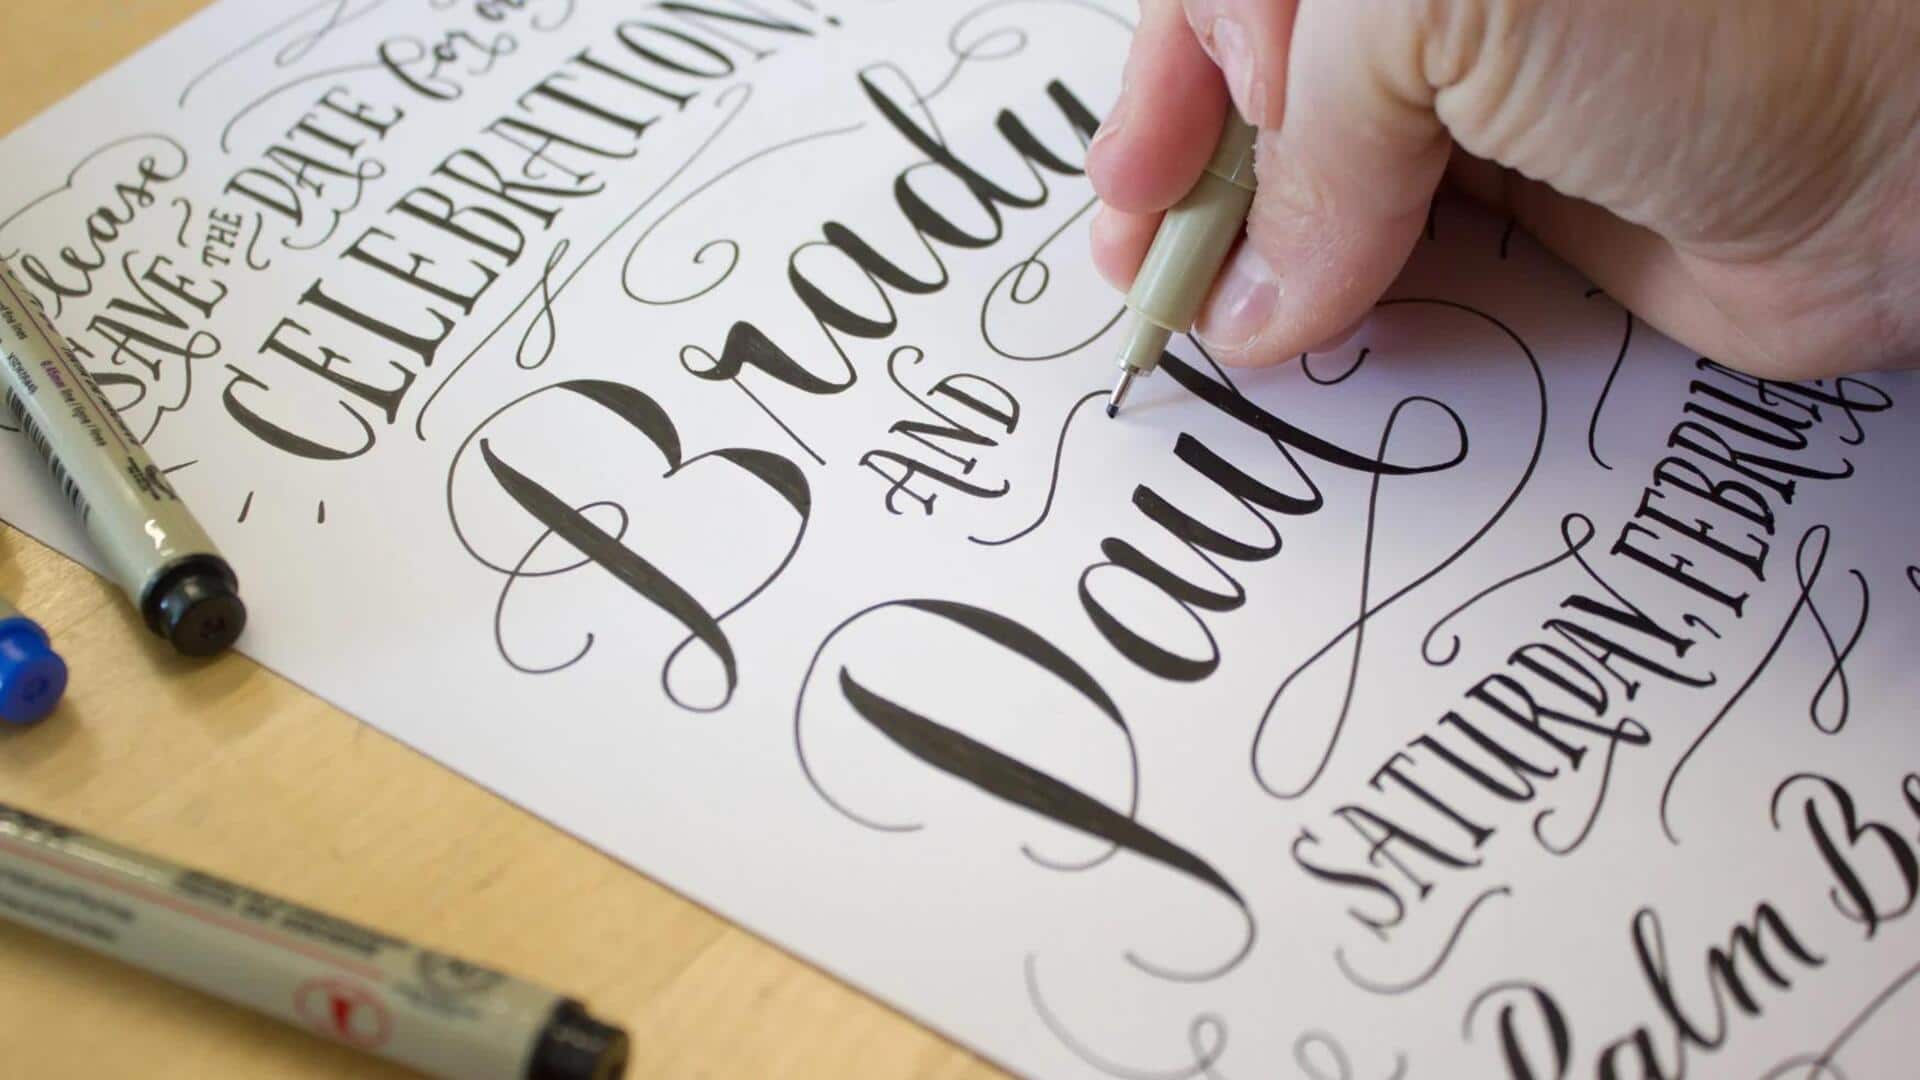 Please
SAVE THE DATE for our
CELEBRATION!
Brady
AND
Paul
SATURDAY, FEBRUA
Palm Be